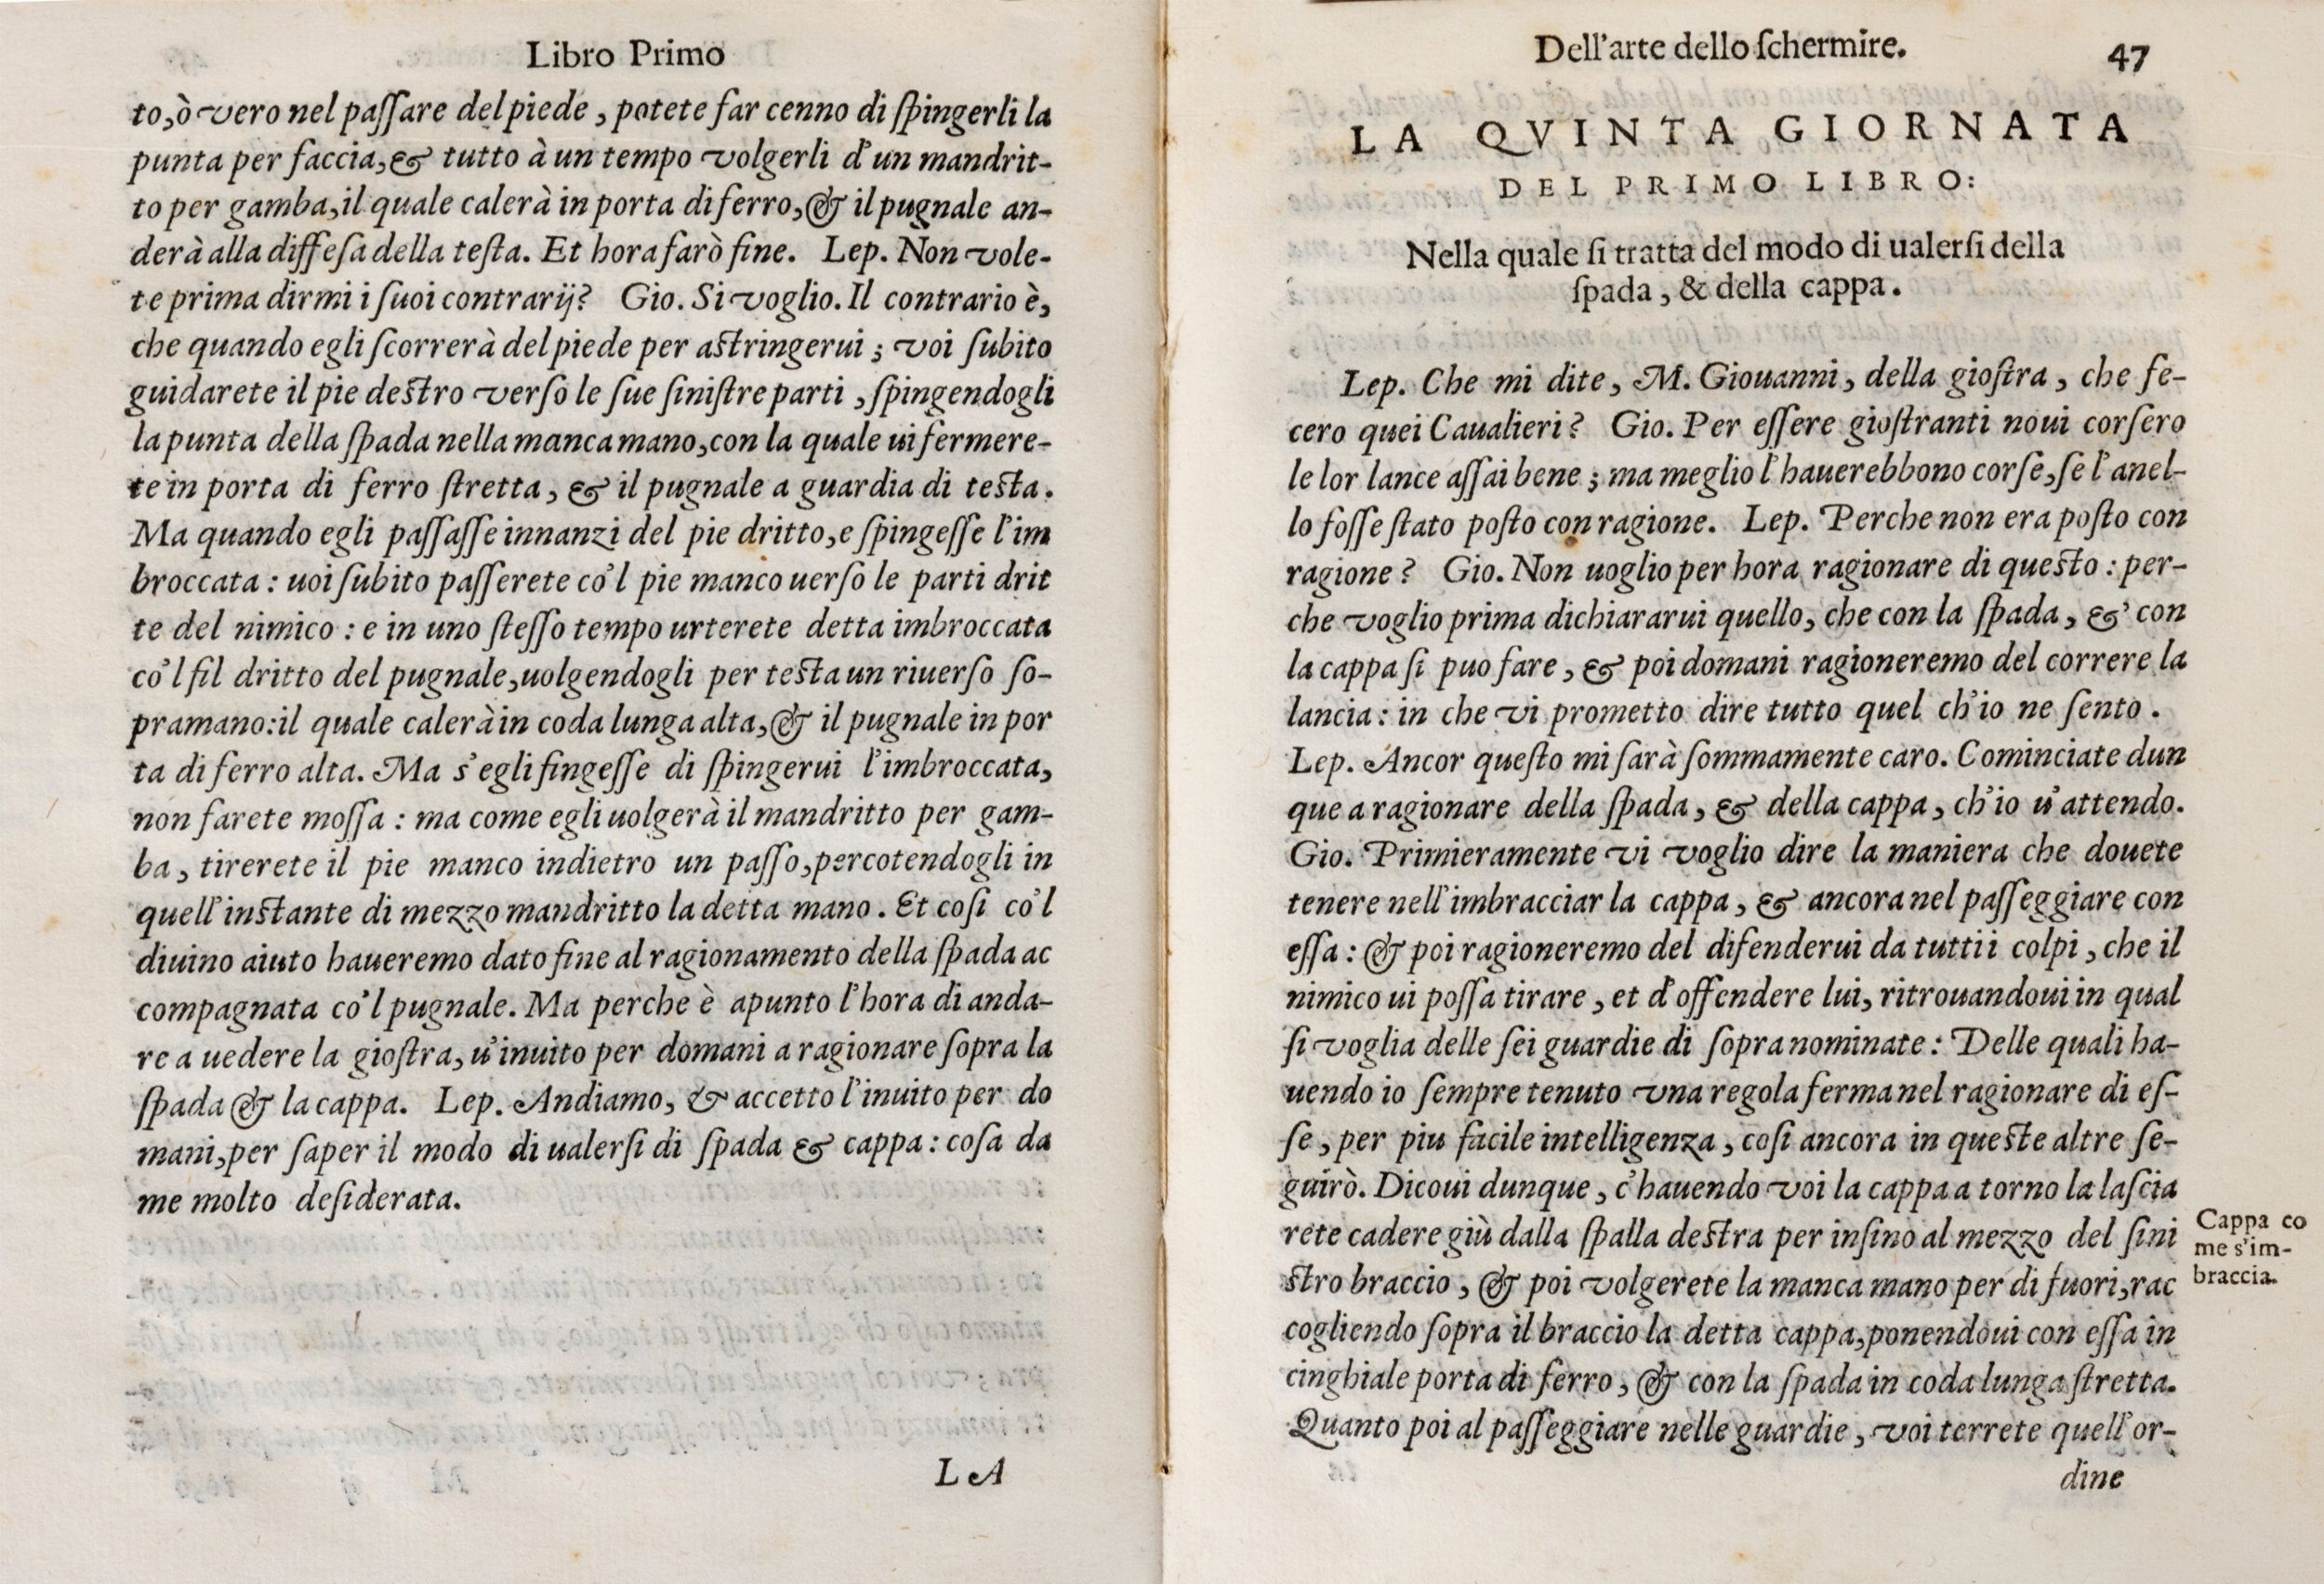 Libro Primo
to,ò vero nel paſſare del piede, potete far cenno di ſpingerli la
punta per faccia,& tutto à un tempo volgerli d'un mandrit-
to per gamba,il quale calerà in porta di ferro,& il pugnale an-
derà alla diffeſa della teſta. Et hora farò fine. Lep. Non vole-
te prima dirmi i ſuoi contrarij? Gio. Si voglio. Il contrario è,
che quando egli ſcorrerà del piede per aſtringerui ; voi ſubito
guidarete il pie deſtro verſo le ſue ſiniſtre parti, ſpingendogli
la punta della ſpada nella manca mano,con la quale ui fermere-
te in porta di ferro ſtretta, & il pugnale a guardia di teſta.
Ma quando egli paſſaſſe innanzi del pie dritto,e ſpingeſſe l'im
broccata : uoi ſubito paſſerete co'l pie manco uerſo le parti drit
te del nimico : e in uno ſteſſo tempo urterete detta imbroccata
co'l fil dritto del pugnale,uolgendogli per teſta un riuerſo ſo-
pramano:il quale calerà in coda lunga alta,& il pugnale in por
ta di ferro alta. Ma s'egli fingeſſe di ſpingerui l'imbroccata,
non farete moſſa : ma come egli uolgerà il mandritto per gam-
ba, tirerete il pie manco indietro un paſſo,percotendogli in
quell'inſtante di mezzo mandritto la detta mano. Et coſi co'l
diuino aiuto haueremo dato fine al ragionamento della ſpada ac
compagnata co'l pugnale. Ma perche è apunto l'hora di anda-
re a uedere la gioſtra, u'inuito per domani a ragionare ſopra la
ſpada & la cappa. Lep. Andiamo, & accetto l'inuito per do
mani,per ſaper il modo di ualerſi di ſpada & cappa : coſa da
me molto deſiderata.
LA
Dell'arte dello ſchermire. 47
LA QVINTA GIORNATA
DEL PRIMO LIBRO:
Nella quale ſi tratta del modo di ualerſi della
ſpada, & della cappa.
Lep. Che mi dite, M. Giouanni, della gioſtra, che fe-
cero quei Caualieri? Gio. Per eſſere gioſtranti noui corſero
le lor lance aſſai bene ; ma meglio l'hauerebbono corſe,ſe l'anel-
lo foſſe ſtato poſto con ragione. Lep. Perche non era poſto con
ragione? Gio. Non uoglio per hora ragionare di queſto : per-
che voglio prima dichiararui quello, che con la ſpada, & con
la cappa ſi puo fare, & poi domani ragioneremo del correre la
lancia : in che vi prometto dire tutto quel ch'io ne ſento.
Lep. Ancor queſto mi ſarà ſommamente caro. Cominciate dun
que a ragionare della ſpada, & della cappa, ch'io u'attendo.
Gio. Primieramente vi voglio dire la maniera che douete
tenere nell'imbracciar la cappa, & ancora nel paſſeggiare con
eſſa : & poi ragioneremo del difenderui da tutti i colpi, che il
nimico ui poſſa tirare, et d'offendere lui, ritrouandoui in qual
ſi voglia delle ſei guardie di ſopra nominate : Delle quali ha-
uendo io ſempre tenuto vna regola ferma nel ragionare di eſ-
ſe, per piu facile intelligenza, coſi ancora in queſte altre ſe-
guirò. Dicoui dunque, c'hauendo voi la cappa a torno la laſcia
rete cadere giù dalla ſpalla deſtra per inſino al mezzo del ſini
ſtro braccio, & poi volgerete la manca mano per di fuori,rac
cogliendo ſopra il braccio la detta cappa,ponendoui con eſſa in
cinghiale porta di ferro, & con la ſpada in coda lunga ſtretta.
Quanto poi al paſſeggiare nelle guardie, voi terrete quell'or-
dine
Cappa co
me s'im-
braccia.